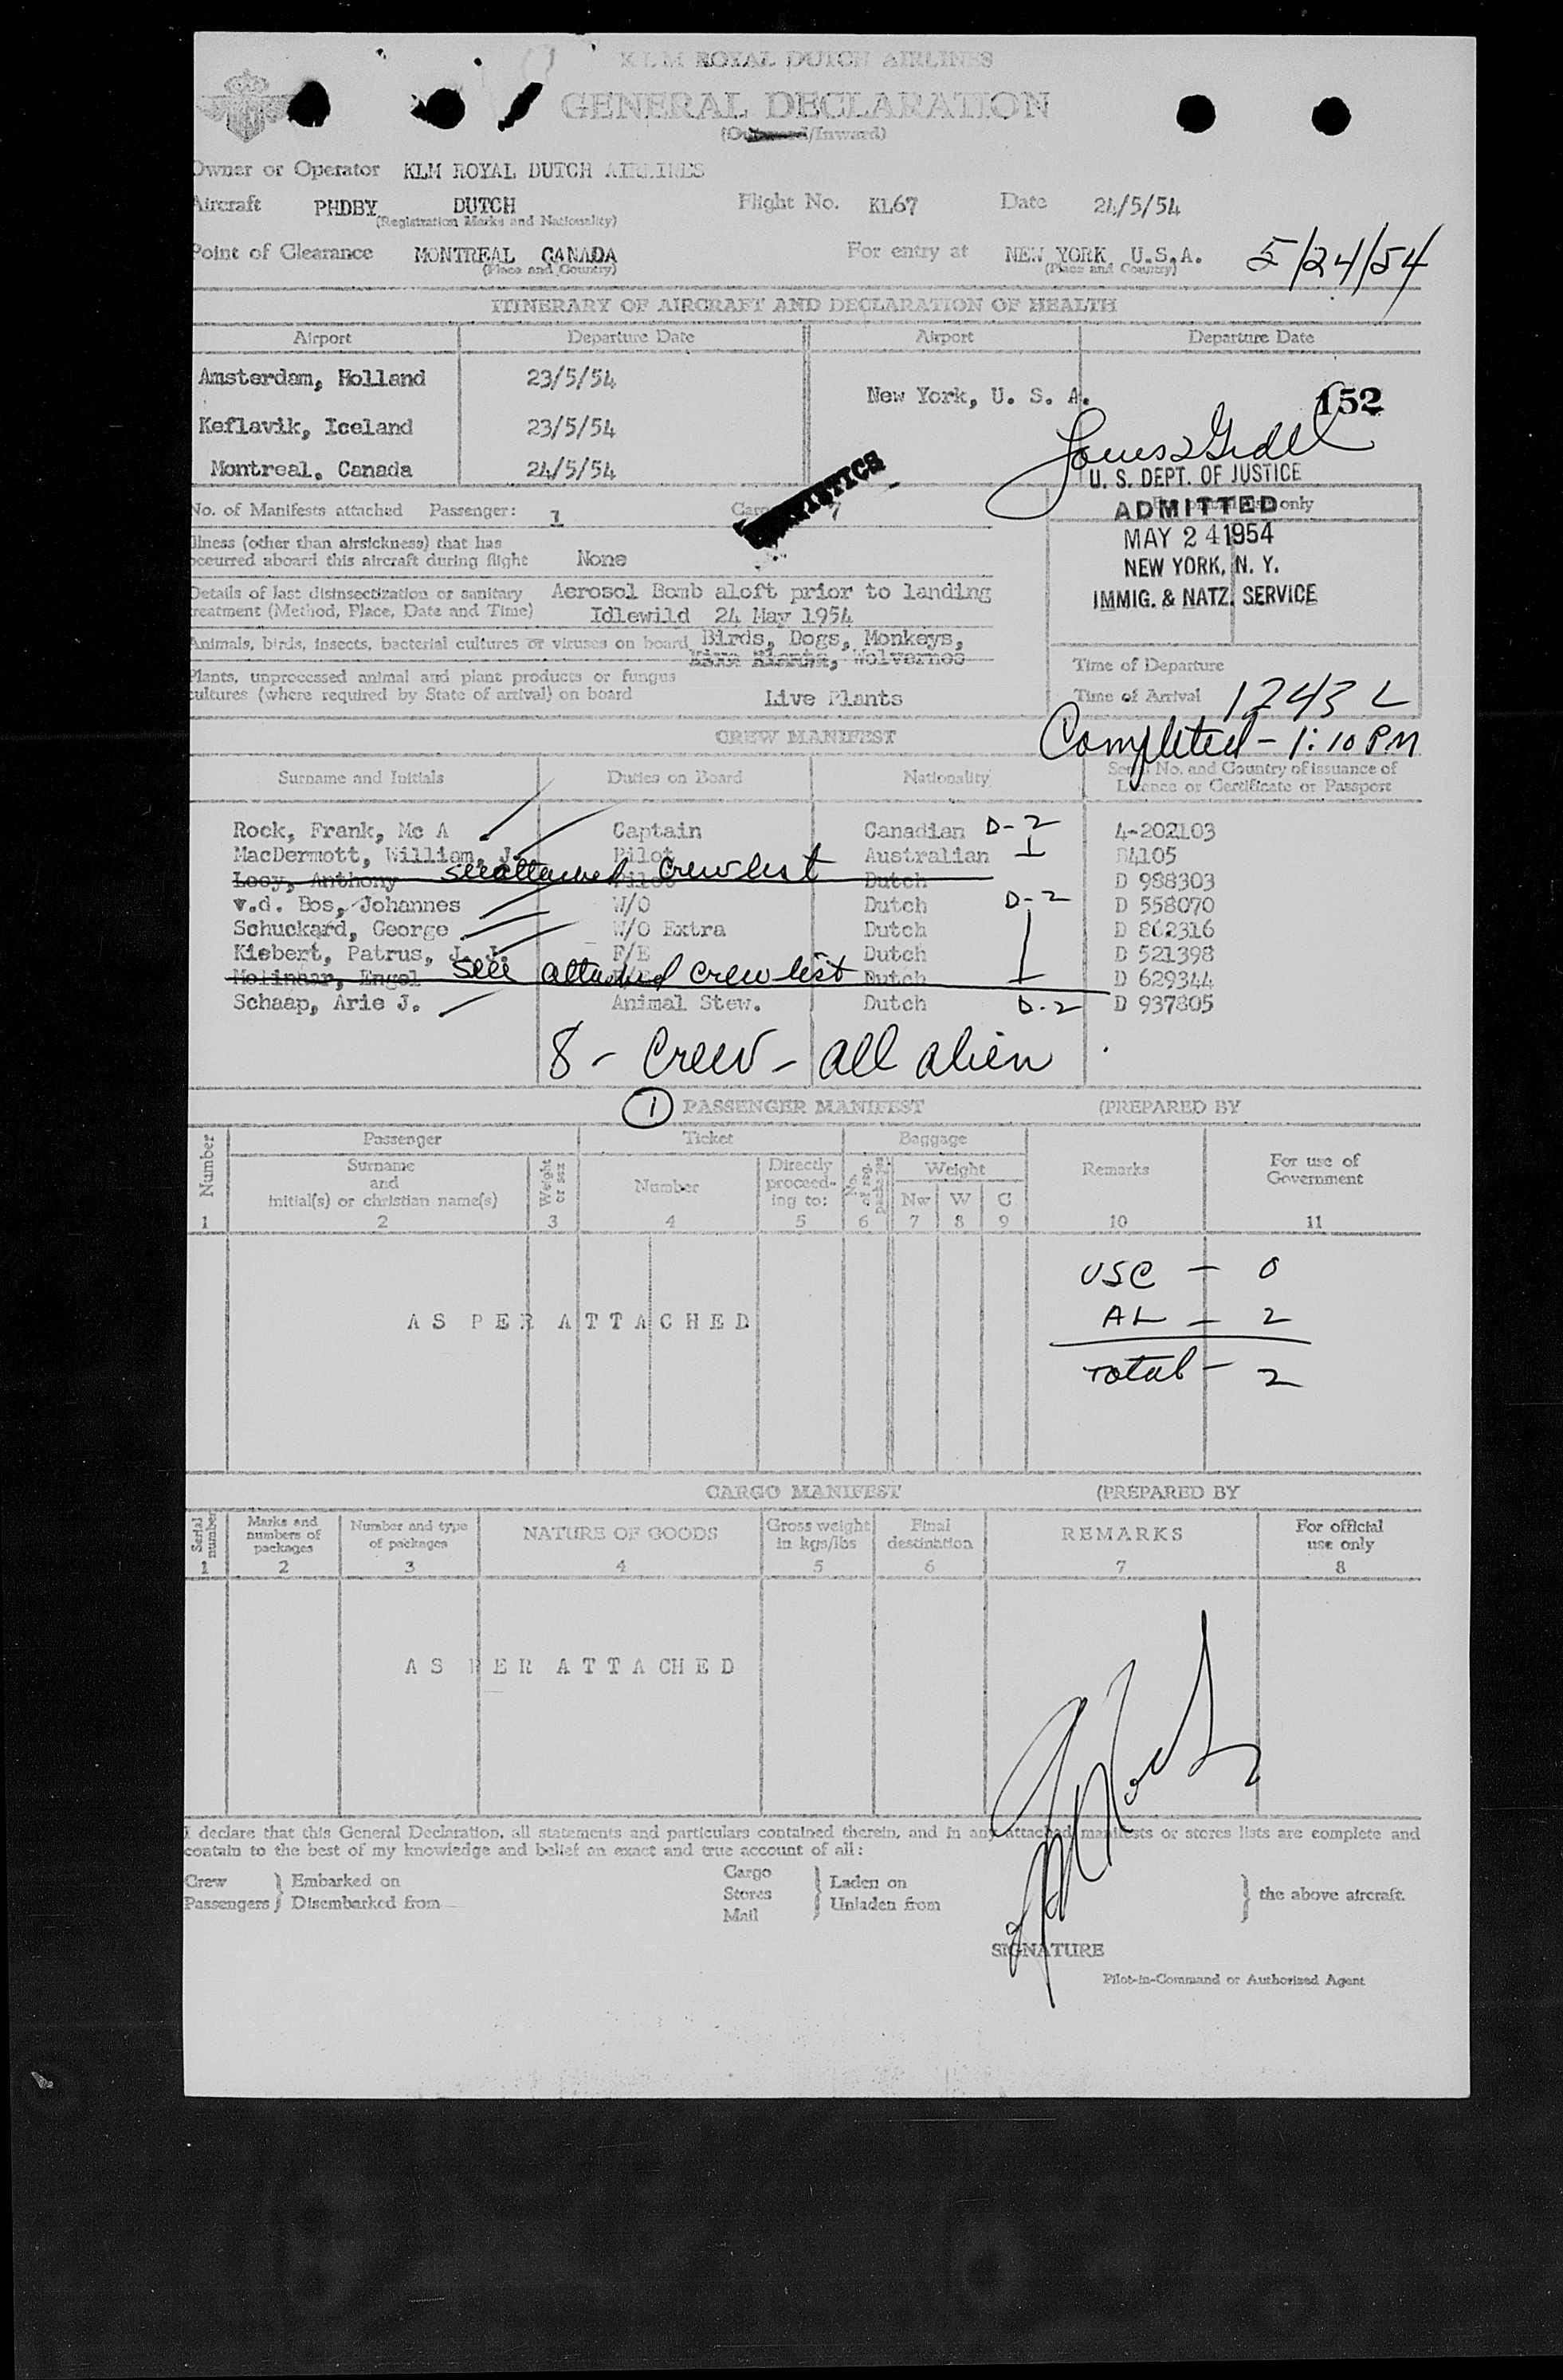 KLM ROYAL DUTCH AIRLINES
GENERAL DECLARATION
(Outward/Inward)
Owner or Operator KLM ROYAL DUTCH AIRLINES
Aircraft PHDBY DUTCH Flight No. KL67 Date 24/5/54
(Registration Marks and Nationality)
Point of Clearance MONTREAL CANADA For entry at NEW YORK U.S.A. 5/24/54
(Place and Country) (Place and Country)
ITINERARY OF AIRCRAFT AND DECLARATION OF HEALTH
Airport Departure Date Airport Departure Date
Amsterdam, Holland 23/5/54
New York, U. S. A. 152
Keflavik, Iceland 23/5/54
Montreal, Canada 24/5/54
U. S. DEPT. OF JUSTICE
No. of Manifests attached Passenger: 1 Cargo 7
ADMITTED only
MAY 24 1954
NEW YORK, N. Y.
IMMIG. & NATZ. SERVICE
Illness (other than airsickness) that has
occurred aboard this aircraft during flight None
Details of last disinsectization or sanitary Aerosol Bomb aloft prior to landing
treatment (Method, Place, Date and Time) Idlewild 24 May 1954
Animals, birds, insects, bacterial cultures or viruses on board Birds, Dogs, Monkeys,
Live Plants, Wolvernes
Plants, unprocessed animal and plant products or fungus
cultures (where required by State of arrival) on board Live Plants
Time of Departure
Time of Arrival 1243 L
Completed - 1:10 PM
CREW MANIFEST
Surname and Initials Duties on Board Nationality Serial No. and Country of issuance of
Licence or Certificate or Passport
Rock, Frank, Mc A Captain Canadian D-2 4-202103
MacDermott, William, J. Pilot Australian 4105
Looy, Anthony see attached crew list Pilot Dutch D 988303
v.d. Bos, Johannes W/O Dutch D-2 D 558070
Schuckard, George W/O Extra Dutch D 862316
Kiebert, Patrus, J. J. F/E Dutch D 521398
Molinaar, Engel see attached crew list Dutch D 629344
Schaap, Arie J. Animal Stew. Dutch D-2 D 937805
8 - Crew - all alien
1 PASSENGER MANIFEST (PREPARED BY
Number Passenger Ticket Baggage Remarks For use of Government
Surname and initial(s) or christian name(s) Weight or sex Number Directly proceeding to: No. of reg. packages Weight
Nw W C
1 2 3 4 5 6 7 8 9 10 11
USC - 0
AS PER ATTACHED AL - 2
Total - 2
CARGO MANIFEST (PREPARED BY
Serial number Marks and numbers of packages Number and type of packages NATURE OF GOODS Gross weight in kgs/lbs Final destination REMARKS For official use only
1 2 3 4 5 6 7 8
AS PER ATTACHED
I declare that this General Declaration, all statements and particulars contained therein, and in any attached manifests or stores lists are complete and
contain to the best of my knowledge and belief an exact and true account of all:
Crew } Embarked on Cargo } Laden on } the above aircraft.
Passengers } Disembarked from Stores } Unladen from
Mail
SIGNATURE
Pilot-in-Command or Authorized Agent